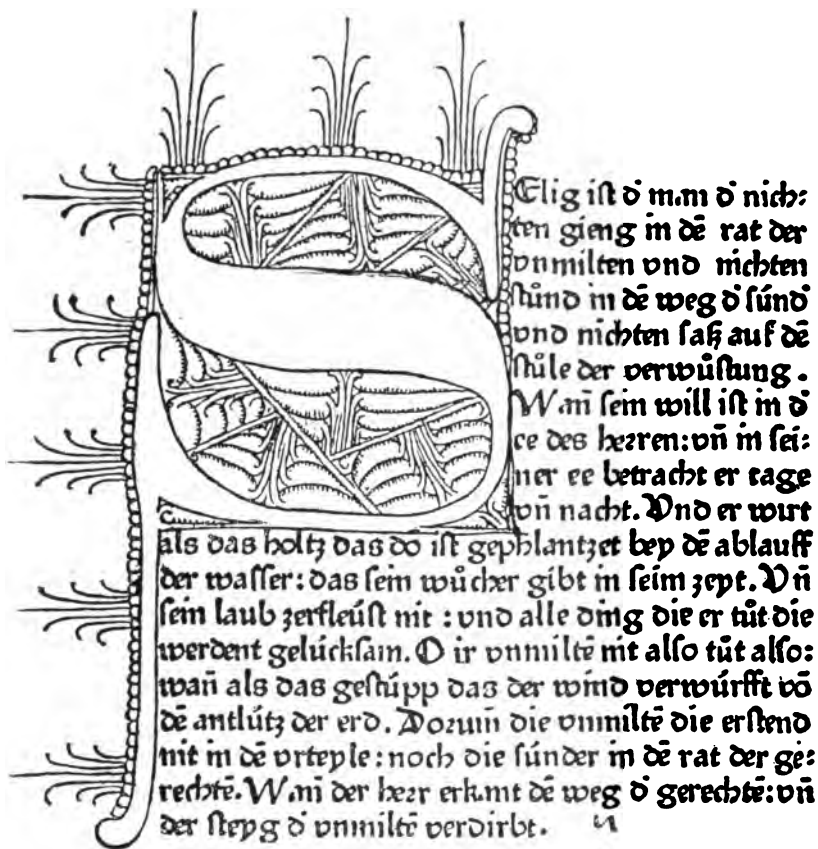 SElig ist đ man đ nich⸗
ten gieng in dē rat der
vnmilten vnd nichten
stůnd in dē weg đ súnđ
vnd nichten saß auf dē
stůle der verwůstung .
Wañ sein will ist in đ
ee des herren: vñ in sei⸗
ner ee betracht er tage
vñ nacht. Vnd er wirt
als das holtz das do ist gephlantzet bey dē ablauff
der wasser: das sein wůcher gibt in seim zeyt. Vñ
sein laub zerfleúst nit : vnd alle ding die er tůt die
werdent gelúcksam. O ir vnmiltē nit also tůt also:
wañ als das gestúpp das der wind verwúrfft vō
dē antlútz der erd. Dorum̄ die vnmiltē die erstend
nit in dē vrteyle: noch die súnder in dē rat der ge⸗
rechtē. Wañ der herr erkant dē weg đ gerechtē: vñ
der steyg đ vnmiltē verdirbt.